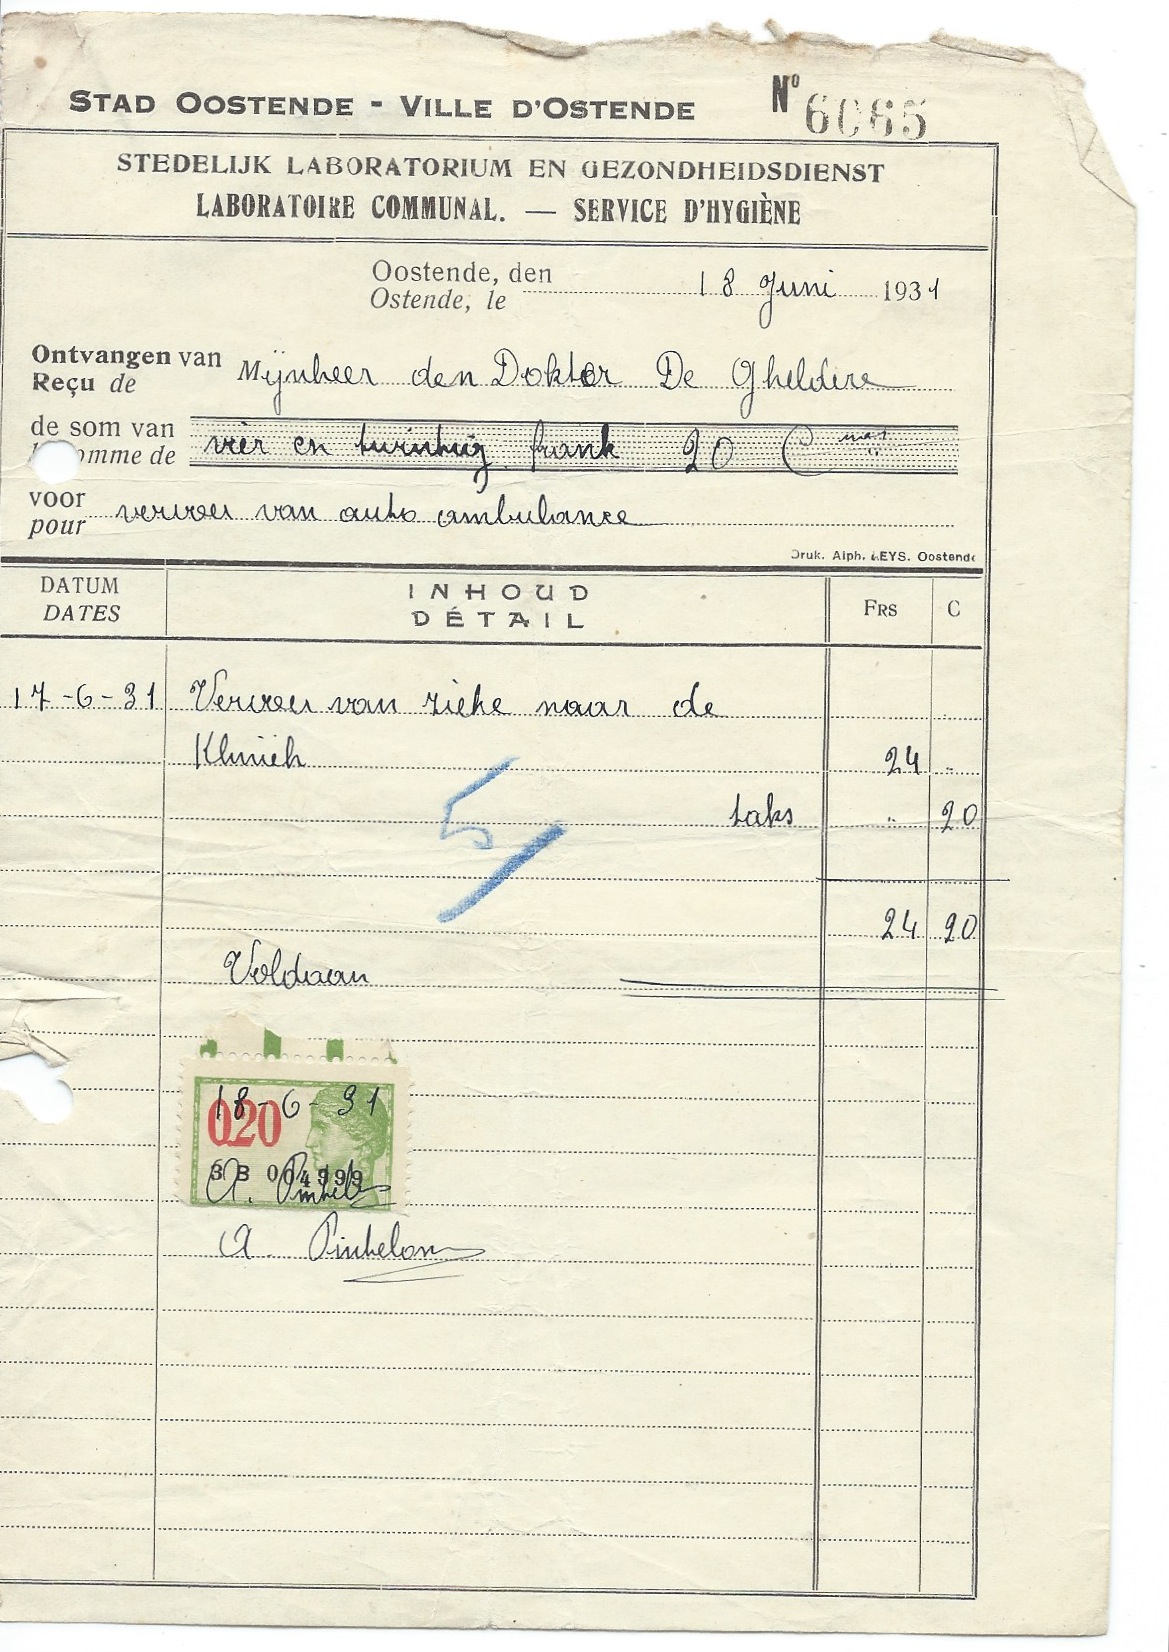 STAD OOSTENDE - VILLE D'OSTENDE Nº 6065
STEDELIJK LABORATORIUM EN GEZONDHEIDSDIENST
LABORATOIRE COMMUNAL. — SERVICE D'HYGIÈNE
Oostende, den
Ostende, le 18 Juni 1931
Ontvangen van
Reçu de Mijnheer den Doktor De Gheldere
de som van
omme de vier en twintig frank 20 C
voor
pour vervoer van auto ambulance
Druk. Alph. LEYS. Oostende
DATUM INHOUD FRS C
DATES DÉTAIL
17-6-31 Vervoer van zieke naar de
Kliniek 24 ..
taks " 20
5
24 20
Voldaan
18-6-31
0.20
3 B 004999
A.
A. Pinkelon